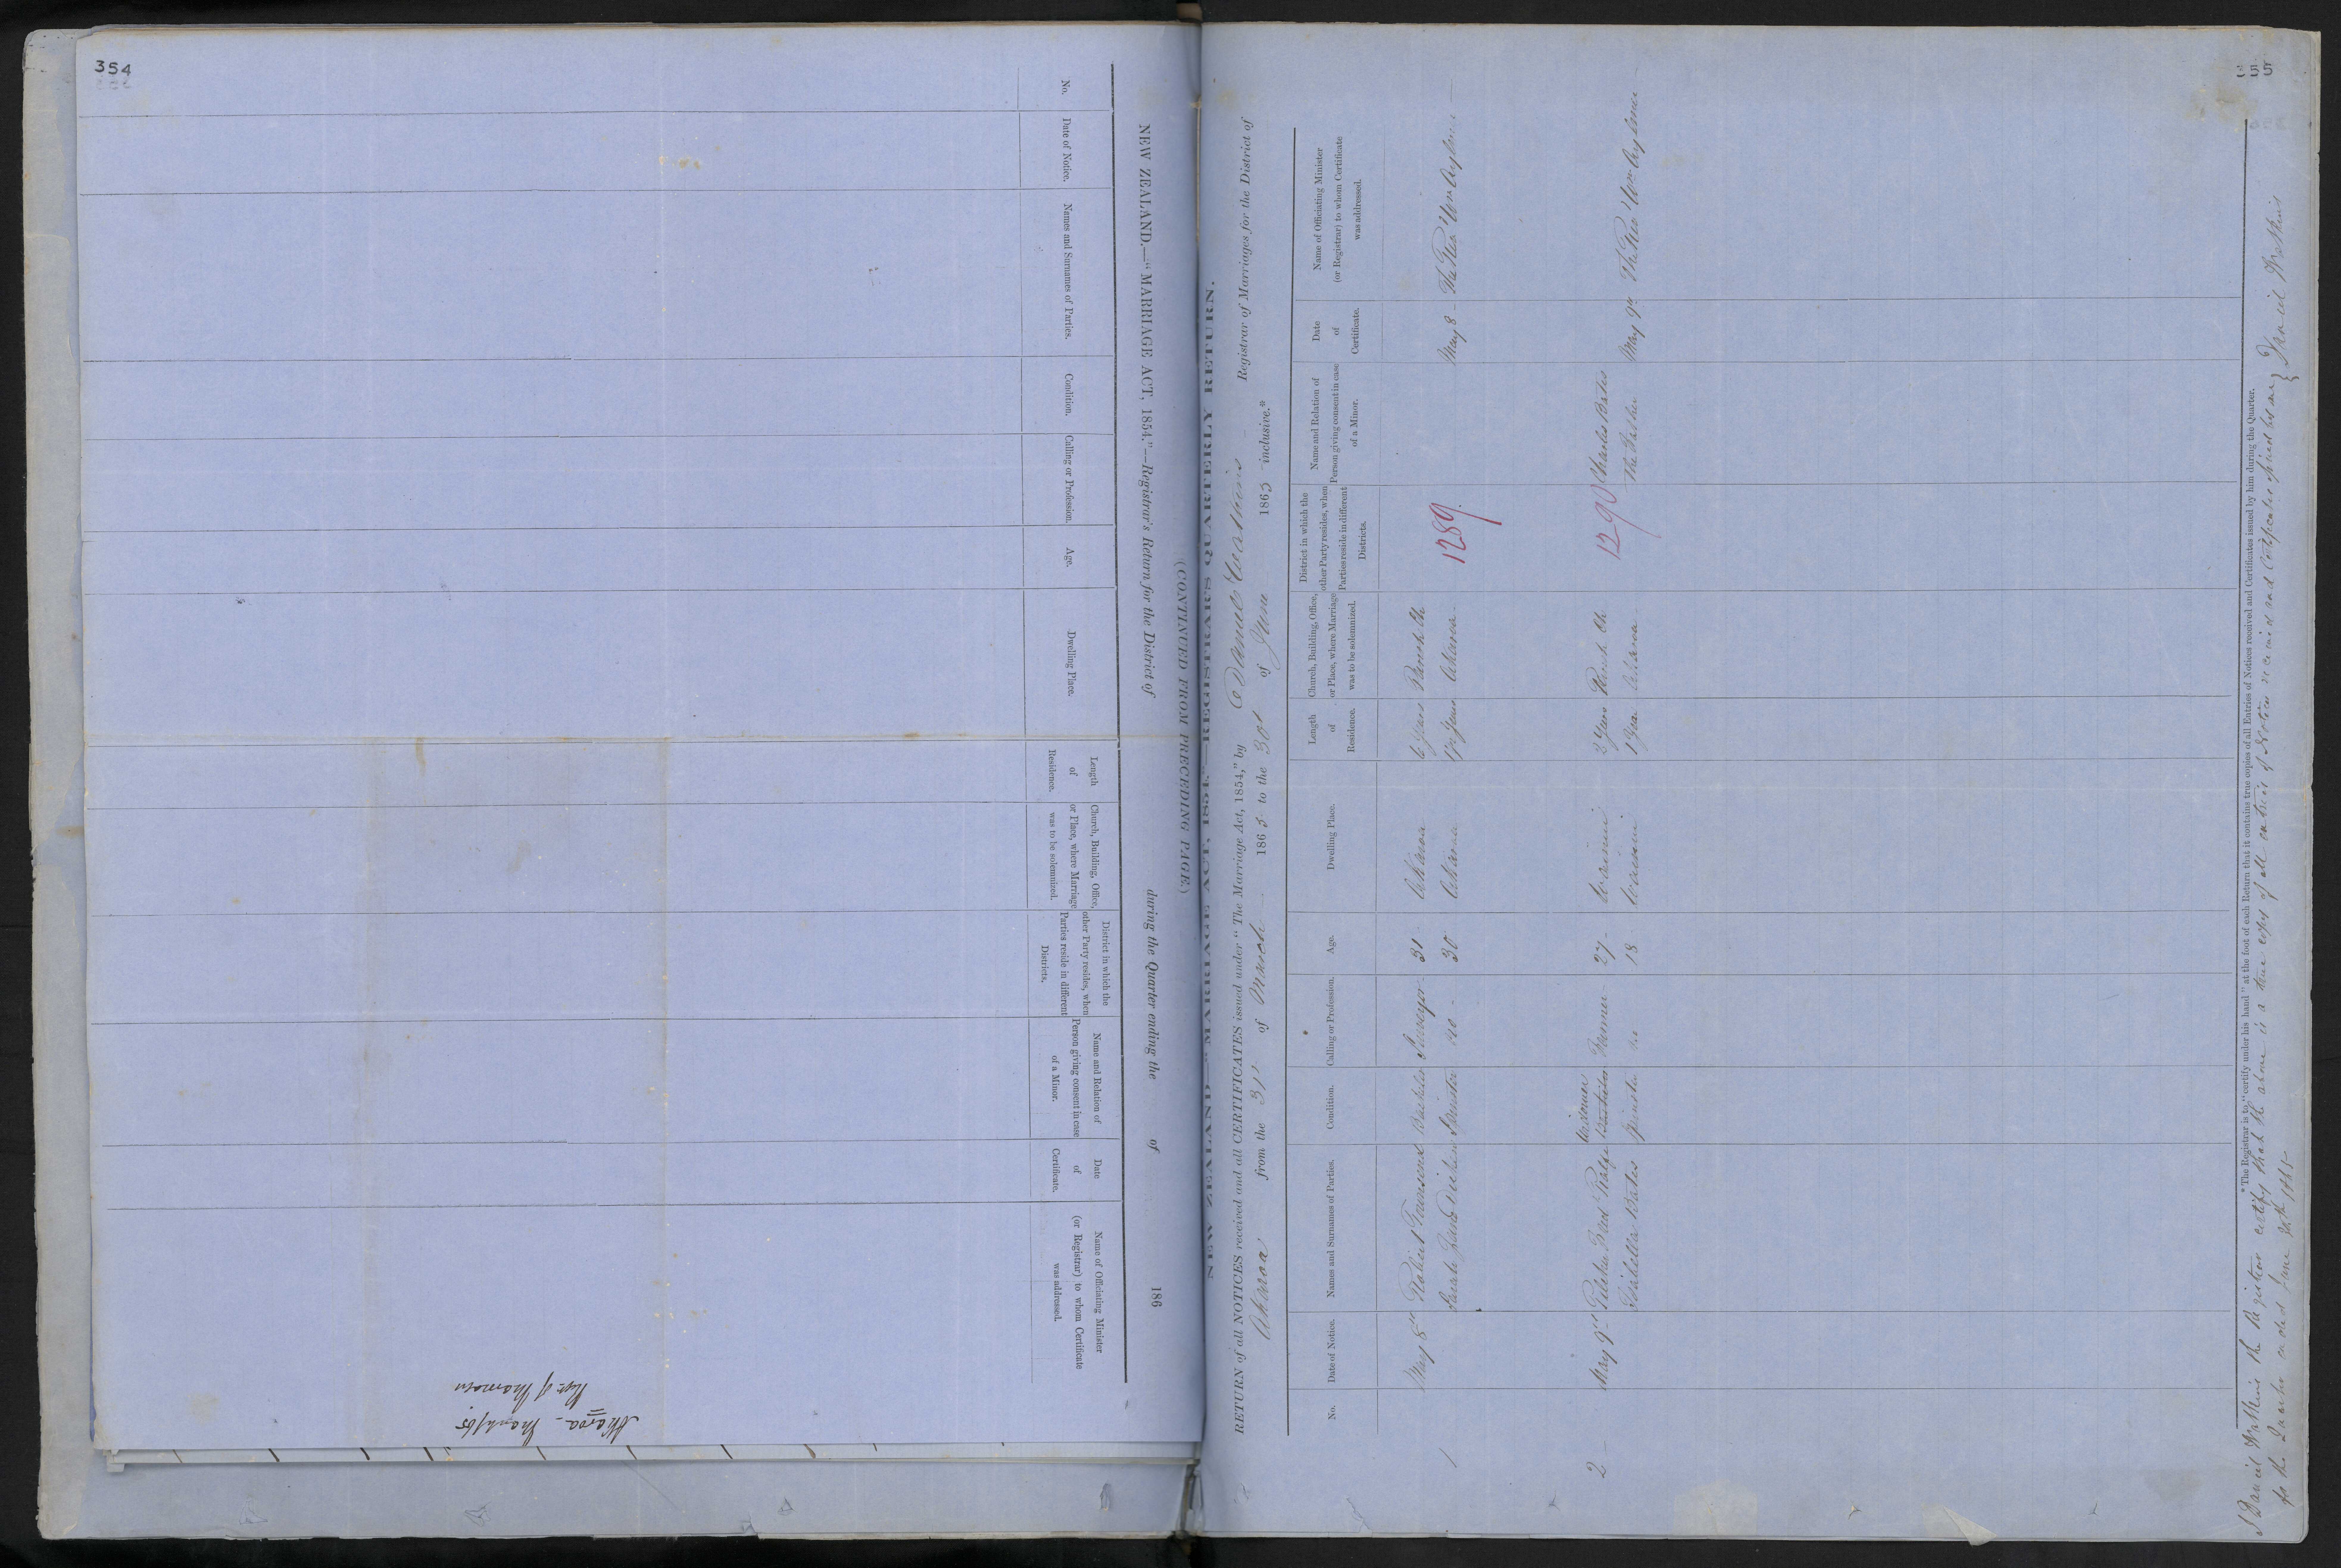 354
NEW ZEALAND.—"MARRIAGE ACT, 1854."—Registrar's Return for the District of during the Quarter ending the of 186
(CONTINUED FROM PRECEDING PAGE.)
No.
Date of Notice.
Names and Surnames of Parties.
Condition.
Calling or Profession.
Age.
Dwelling Place.
Length
of
Residence.
Church, Building, Office,
or Place, where Marriage
was to be solemnized.
District in which the
other Party resides, when
Parties reside in different
Districts.
Name and Relation of
Person giving consent in case
of a Minor.
Date
of
Certificate.
Name of Officiating Minister
(or Registrar) to whom Certificate
was addressed.
Akaroa
355
NEW ZEALAND—"MARRIAGE ACT, 1854."—REGISTRAR'S QUARTERLY RETURN.
RETURN of all NOTICES received and all CERTIFICATES issued under "The Marriage Act, 1854," by Daniel Watkins Registrar of Marriages for the District of
Akaroa from the 31st of March 1865 to the 30th of June 1865 inclusive.*
No.
Date of Notice.
Names and Surnames of Parties.
Condition.
Calling or Profession.
Age.
Dwelling Place.
Length
of
Residence.
Church, Building, Office,
or Place, where Marriage
was to be solemnized.
District in which the
other Party resides, when
Parties reside in different
Districts.
Name and Relation of
Person giving consent in case
of a Minor.
Date
of
Certificate.
Name of Officiating Minister
(or Registrar) to whom Certificate
was addressed.
1 May 8th Robert Townsend Bachelor Surveyor 31 Akaroa 6 Years Parish Ch 1289 May 8 The Revd Wm Aylmer
Sarah Jane Spinster do 30 Akaroa Akaroa
2 May 9th Bachelor Widower Farmer 27 Wainui 2 Years Parish Ch 1290 Charles Bates May 9th The Revd Wm Aylmer
Isabella Bates Spinster do 18 Wainui 1 Year Akaroa The Father
* The Registrar is to "certify under his hand" at the foot of each Return that it contains true copies of all Entries of Notices received and Certificates issued by him during the Quarter.
I Daniel Watkins the Registrar certify that the above is a true copy of all entries of Notices received and Certificates issued by me } Daniel Watkins
for the Quarter ended June 30th 1865